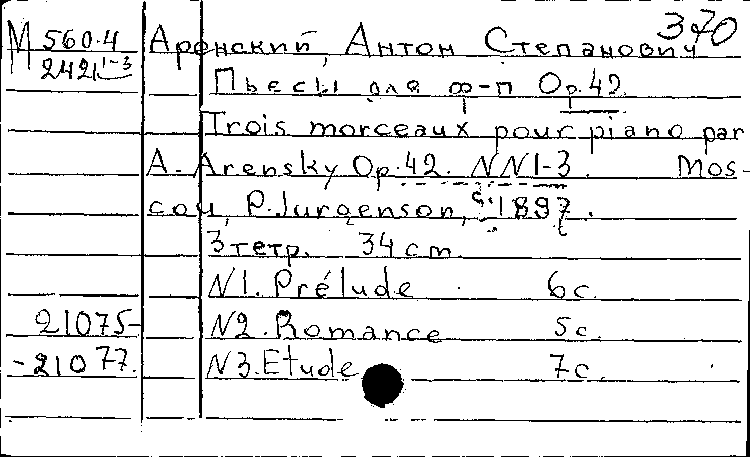 370
М 560.4 Аренский, Антон Степанович
242 1-3 Пьесы для ф-п Op.42.
Trois morceaux pour piano par
A. Arensky Op.42. NN1-3. Mos-
cou, P. Jurgenson, 1897.
3 тетр. 34 cm.
N1. Prélude 6 c.
21075- N2. Romance 5 c.
-21077. N3. Etude 7 c.